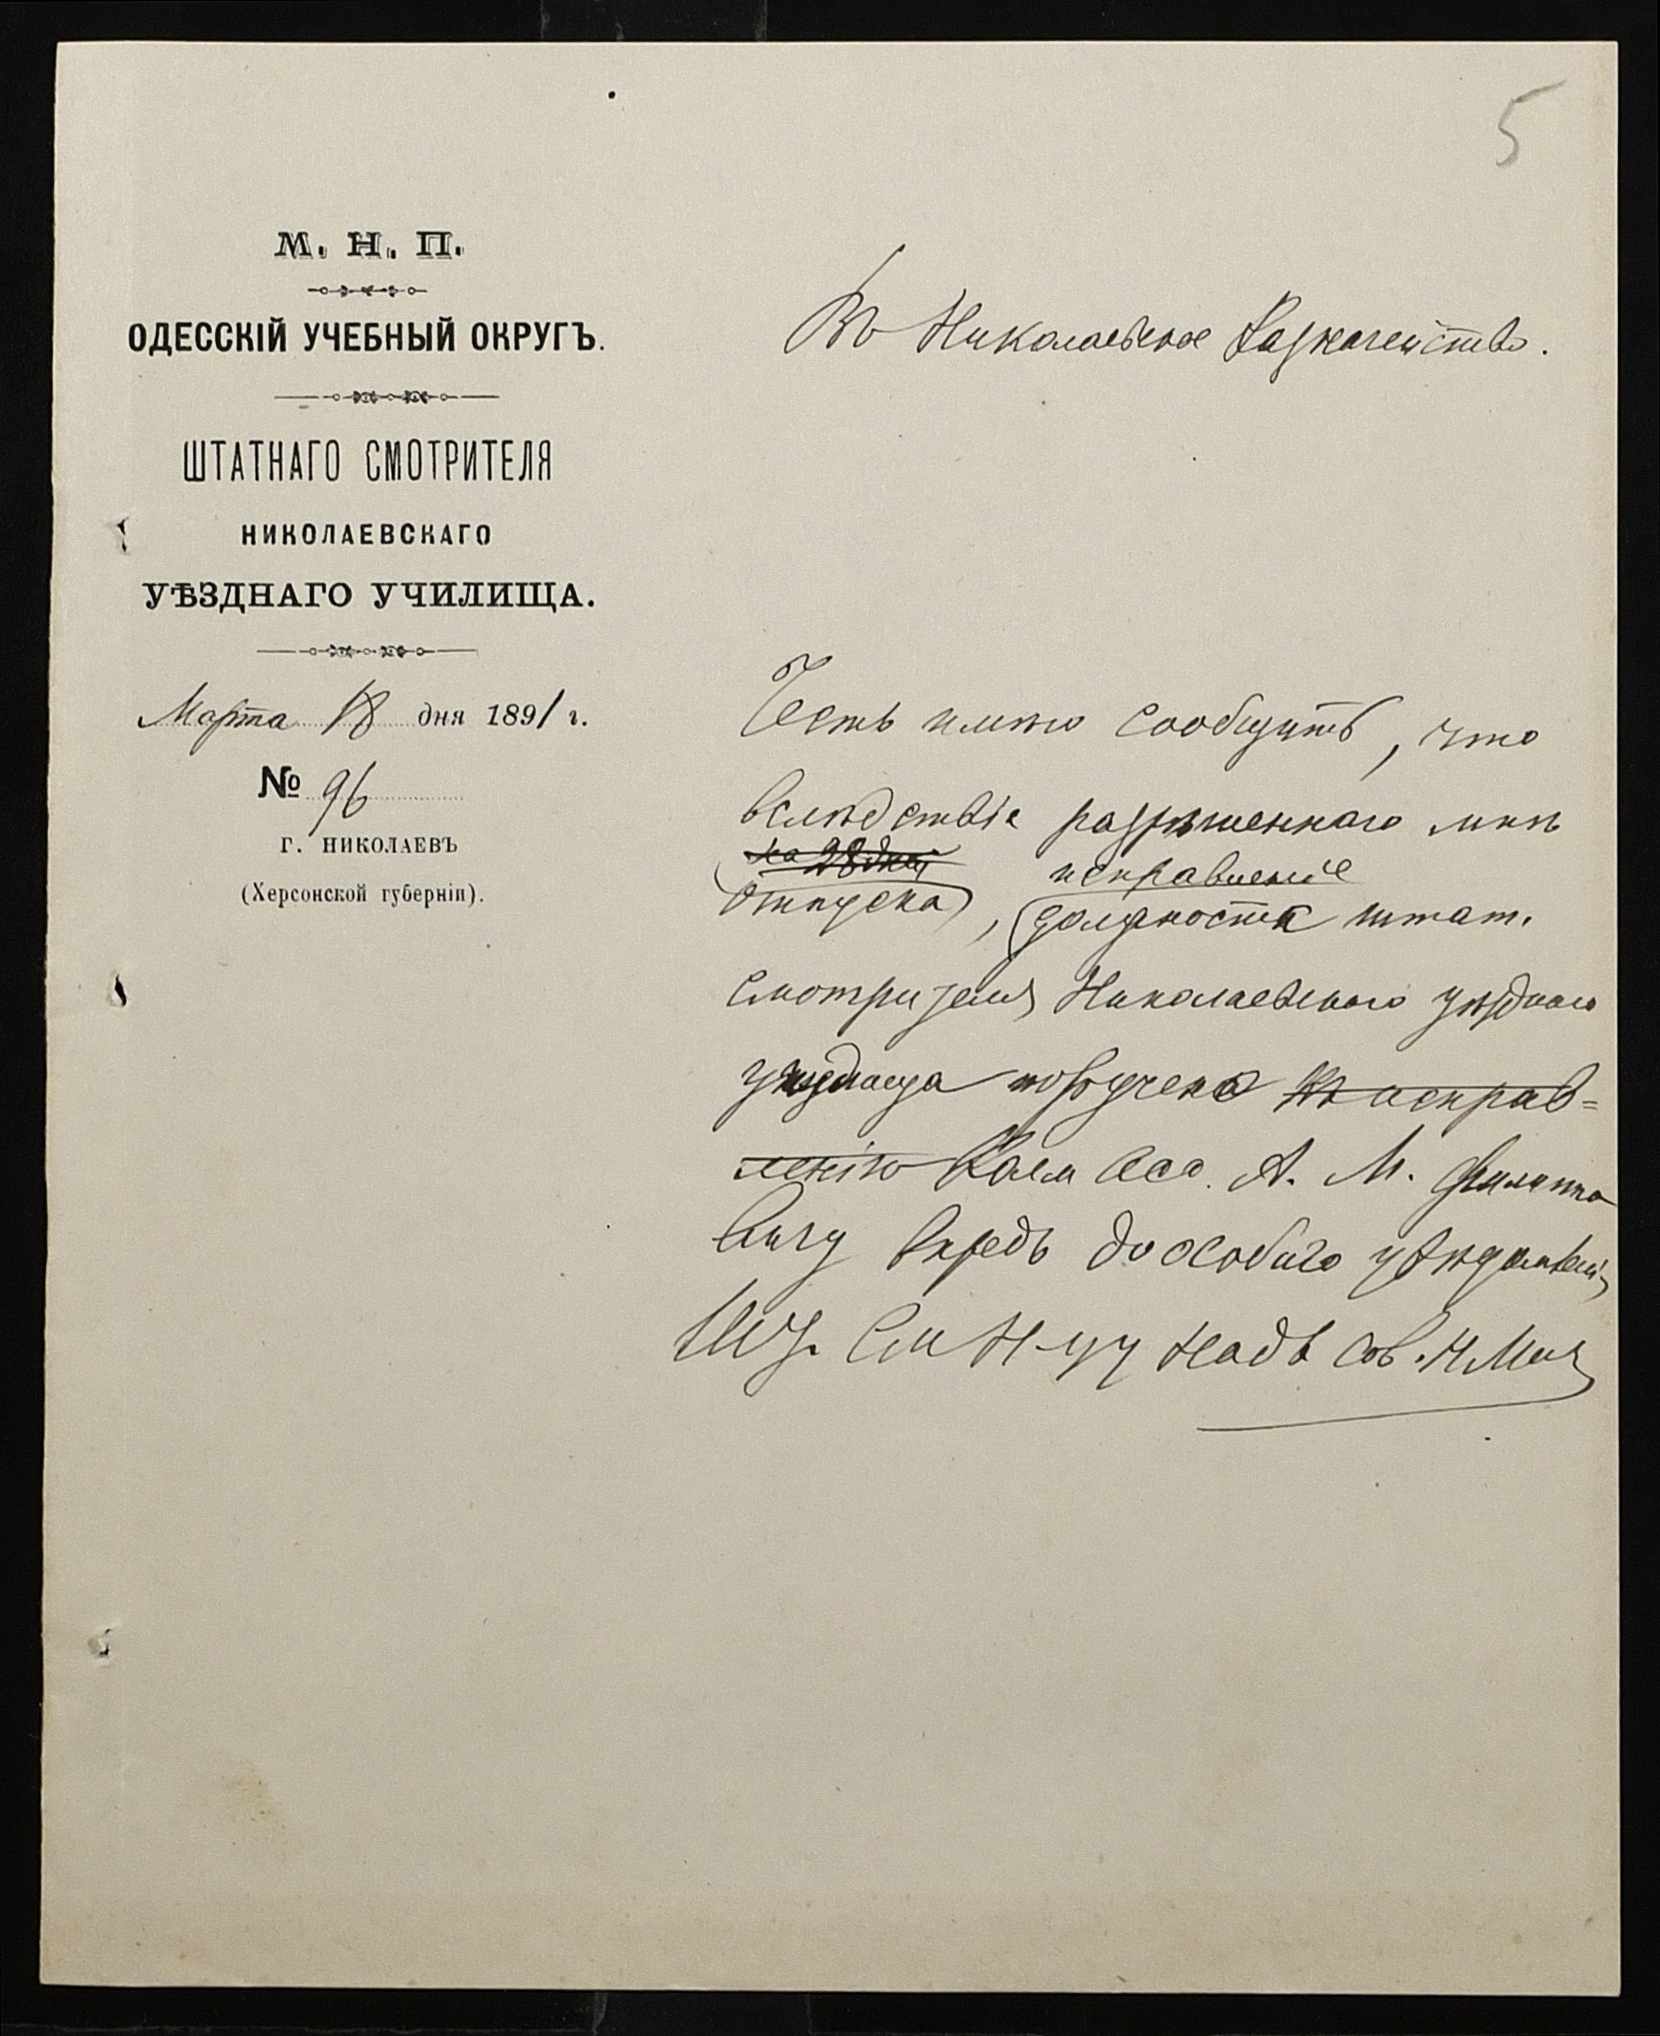 5
М. Н. П.
ОДЕССКІЙ УЧЕБНЫЙ ОКРУГЪ.
ШТАТНАГО СМОТРИТЕЛЯ
НИКОЛАЕВСКАГО
УѢЗДНАГО УЧИЛИЩА.
Марта 18 дня 1891 г.
№ 96
Г. НИКОЛАЕВЪ
(Херсонской губерніи).
Въ Николаевское Казначейство.
Честь имѣю сообщить, что
вслѣдствіе разрѣшеннаго мнѣ
на 28 дней исправленіе
отпуска, должности штат.
смотрителя Николаевскаго уѣзднаго
училища поручено къ исправ=
ленію Колл Асс. А. М. Филиппо
вичу впредь до особаго увѣдомленія
Шт. См Н. у у Надв Сов.